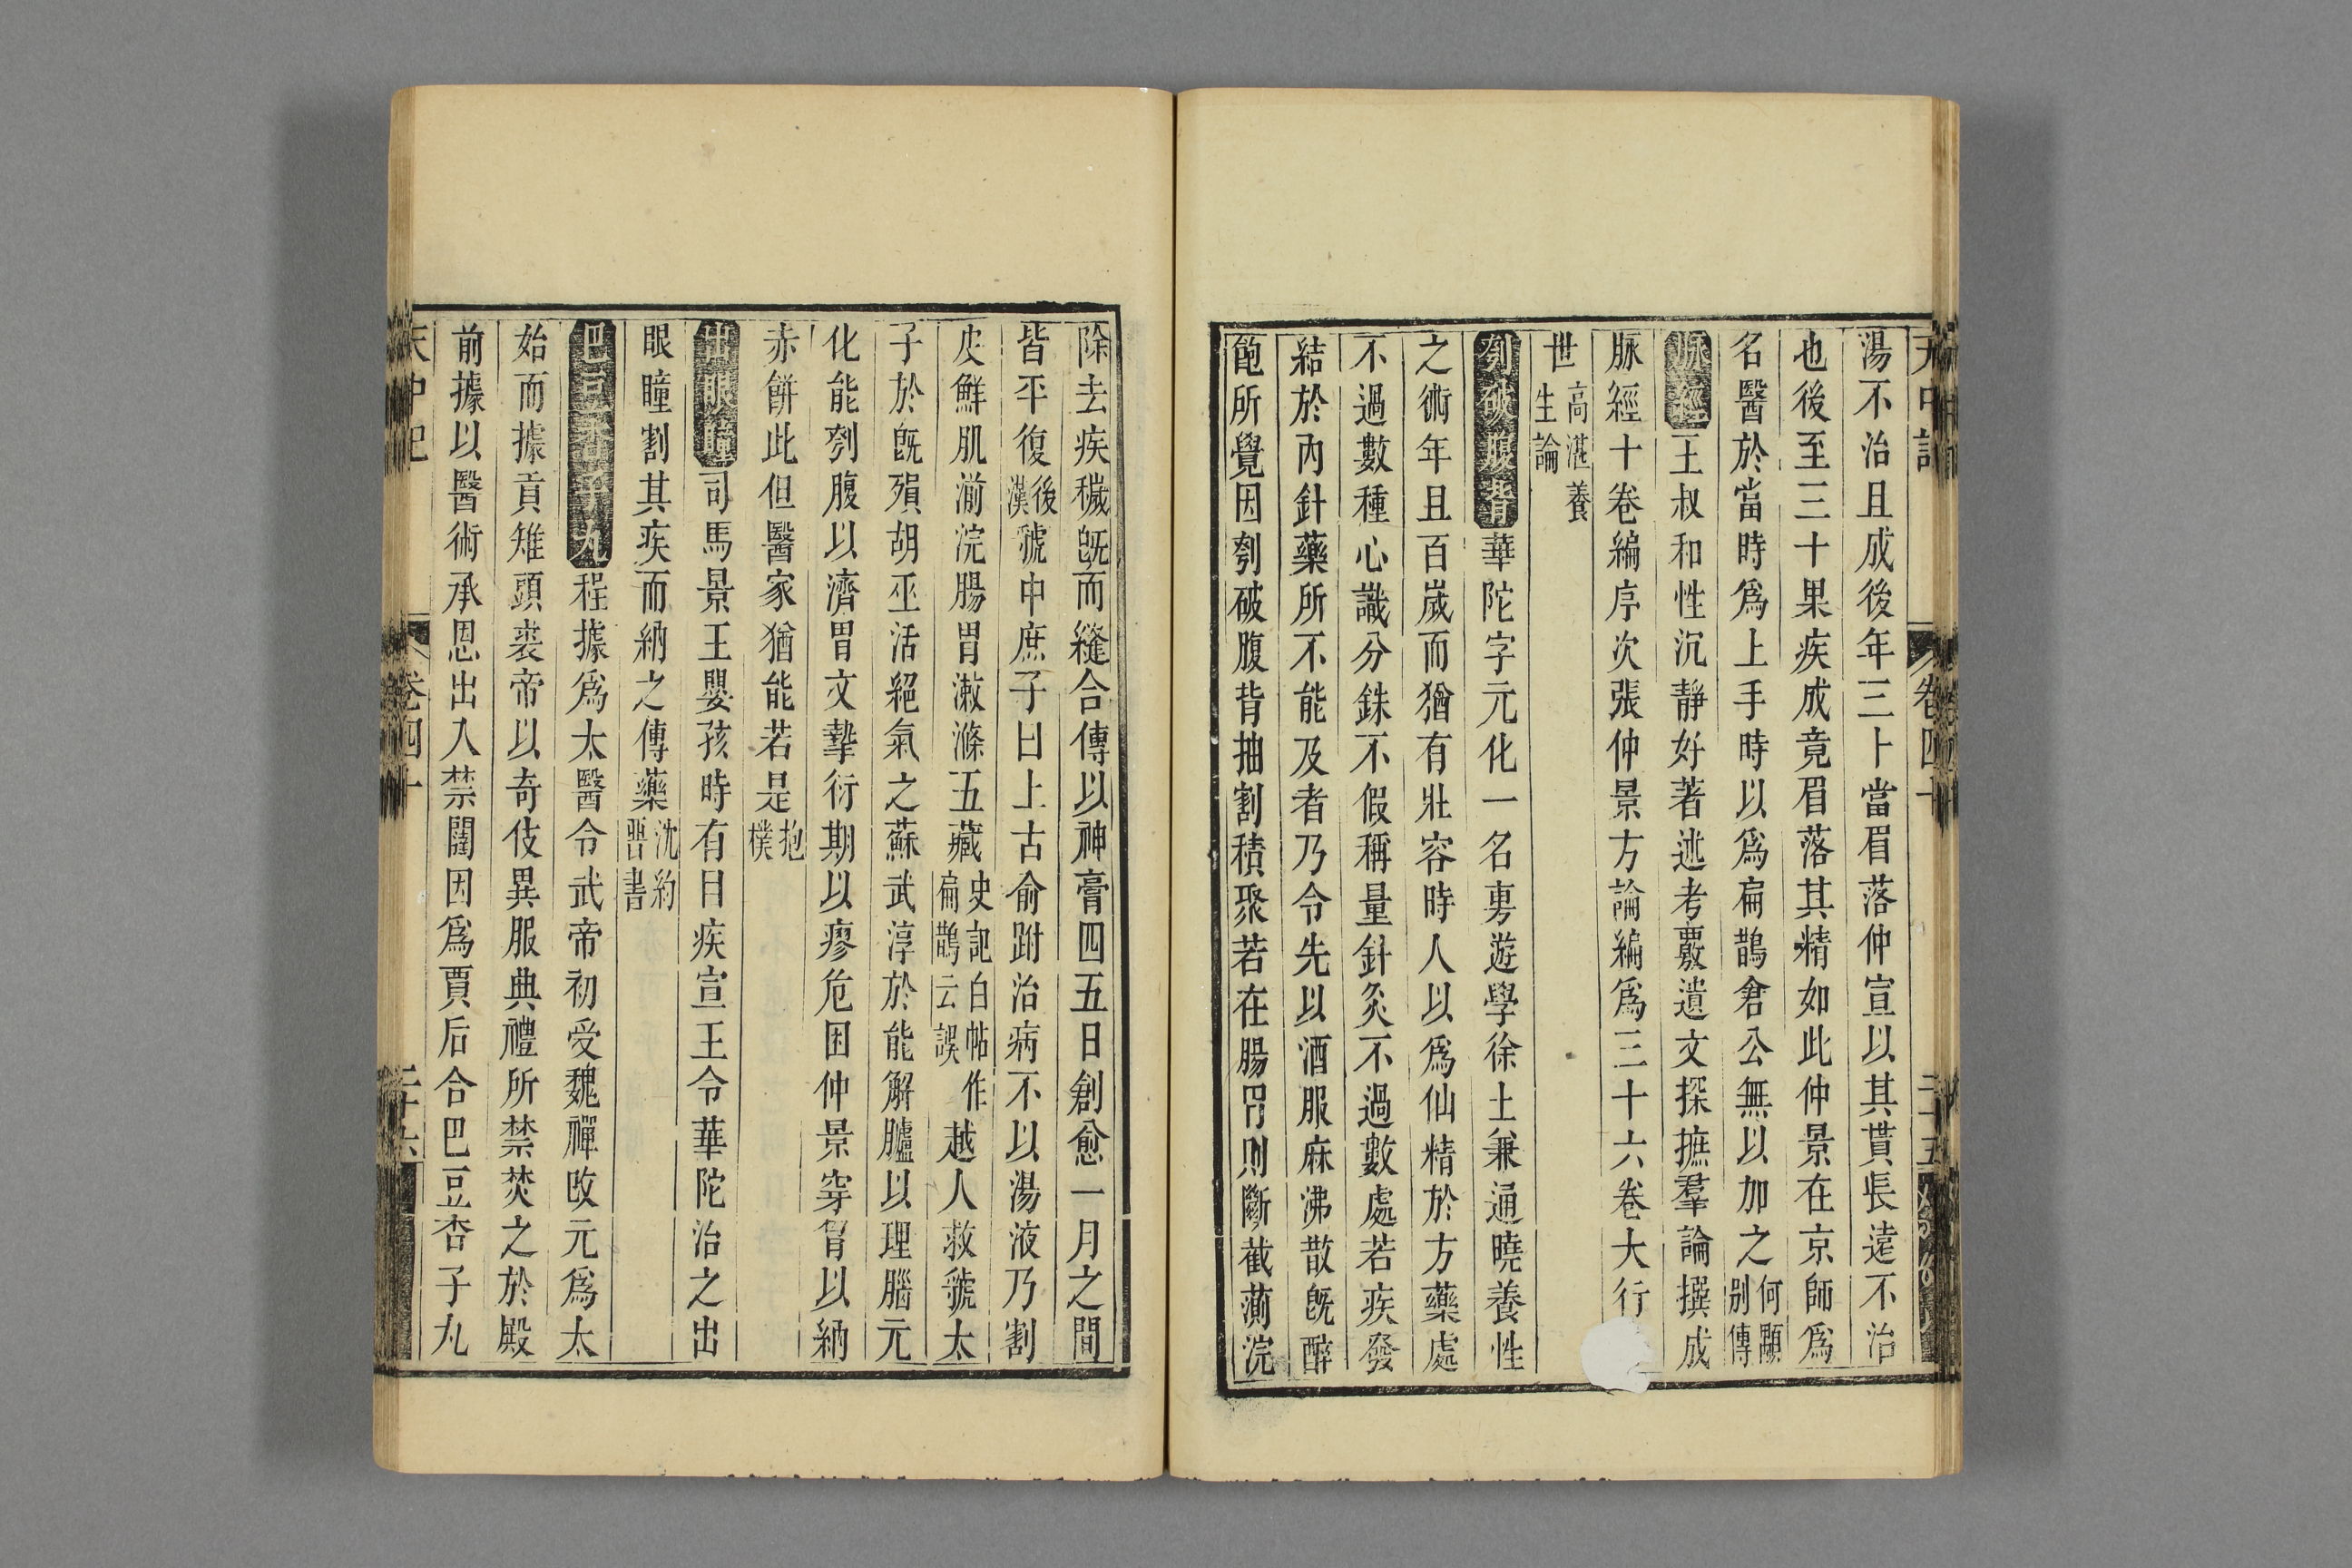 天中記 卷四十 二十五
湯不治且成後年三十當眉落仲宣以其賁長遠不治
也後至三十果疾成竟眉落其精如此仲景在京師爲
名醫於當時爲上手時以爲扁鵲倉公無以加之何顒別傳
脉經王叔和性沉靜好著述考覈遺文採摭羣論撰成
脉經十卷編序次張仲景方論編爲三十六卷大行
世高湛養生論
刳破腹背華陀字元化一名旉遊學徐土兼通曉養性
之術年且百歲而猶有壯容時人以爲仙精於方藥處
不過數種心識分銖不假稱量針灸不過數處若疾發
結於內針藥所不能及者乃令先以酒服麻沸散旣醉
所覺因刳破腹背抽割積聚若在腸胃則斷截湔浣
除去疾穢旣而縫合傳以神膏四五日創愈一月之間
皆平復後漢虢中庶子曰上古俞跗治病不以湯液乃割
皮鮮肌湔浣腸胃漱滌五藏史記白帖作扁鵲云誤越人救虢太
子於旣殞胡巫活絕氣之蘇武淳於能解臚以理腦元
化能刳腹以濟胃文摯衍期以瘳危困仲景穿胷以納
赤餅此但醫家猶能若是抱樸
出眼瞳司馬景王嬰孩時有目疾宣王令華陀治之出
眼瞳割其疾而納之傳藥沈約晉書
巴豆杏子丸程據爲太醫令武帝初受魏禪改元爲太
始而據貢雉頭裘帝以奇伎異服典禮所禁焚之於殿
前據以醫術承恩出入禁闥因爲賈后合巴豆杏子丸
天中記 卷四十 二十六